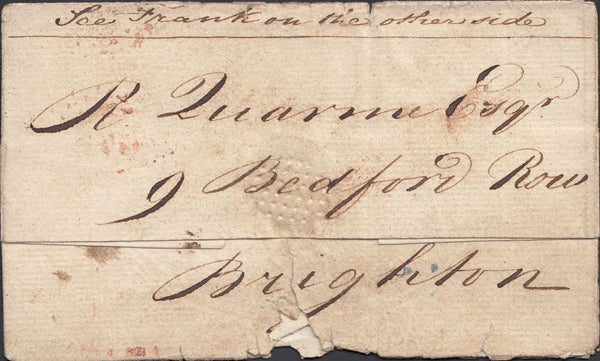 See Frank on the other side
R Quarme Esqr
9 Bedford Row
Brighton